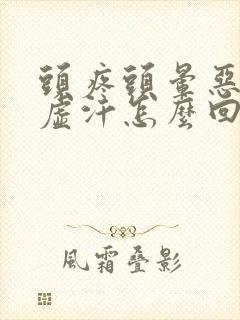 頭疼頭暈惡
虛汗怎麼回
風霜疊影